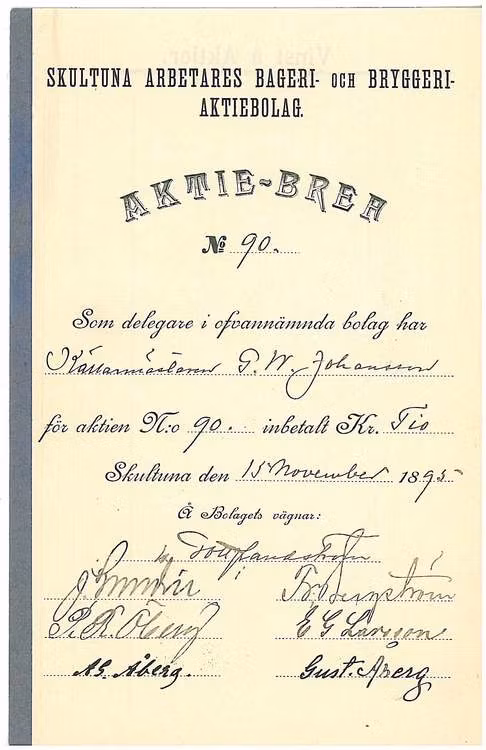 SKULTUNA ARBETARES BAGERI- OCH BRYGGERI-
AKTIEBOLAG.
AKTIE-BREF
No 90.
Som delegare i ofvannämnda bolag har
Källarmästaren P. W. Johansson
för aktien N:o 90. inbetalt Kr. Tio
Skultuna den 15 November 1895
Å Bolagets vägnar:
Fr. Bergström
P. R. Öberg E G Larsson
A. G. Åberg. Gust. Åberg